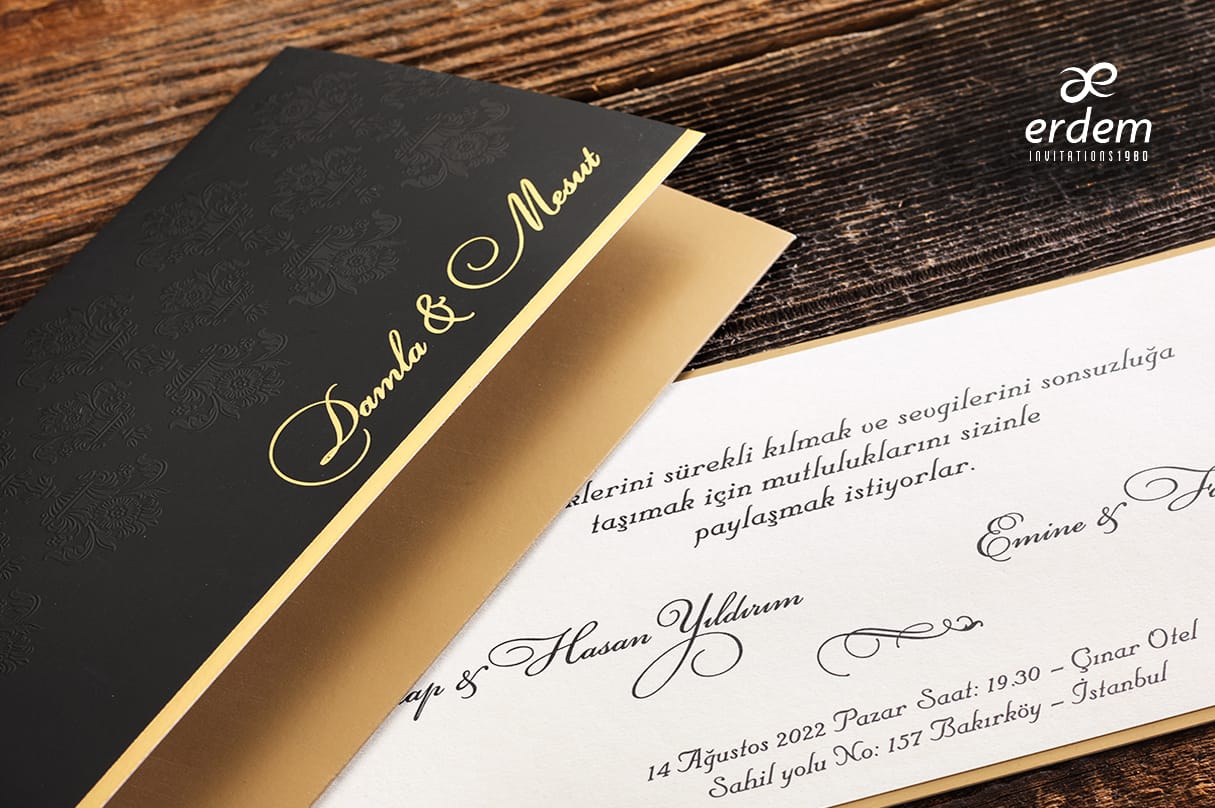 erdem
INVITATIONS1980
Damla & Mesut
sürekli kılmak ve sevgilerini sonsuzluğa
taşımak için mutluluklarını sizinle
paylaşmak istiyorlar.
Emine &
& Hasan Yıldırım
14 Ağustos 2022 Pazar Saat: 19.30 – Çınar Otel
Sahil yolu No: 157 Bakırköy – İstanbul